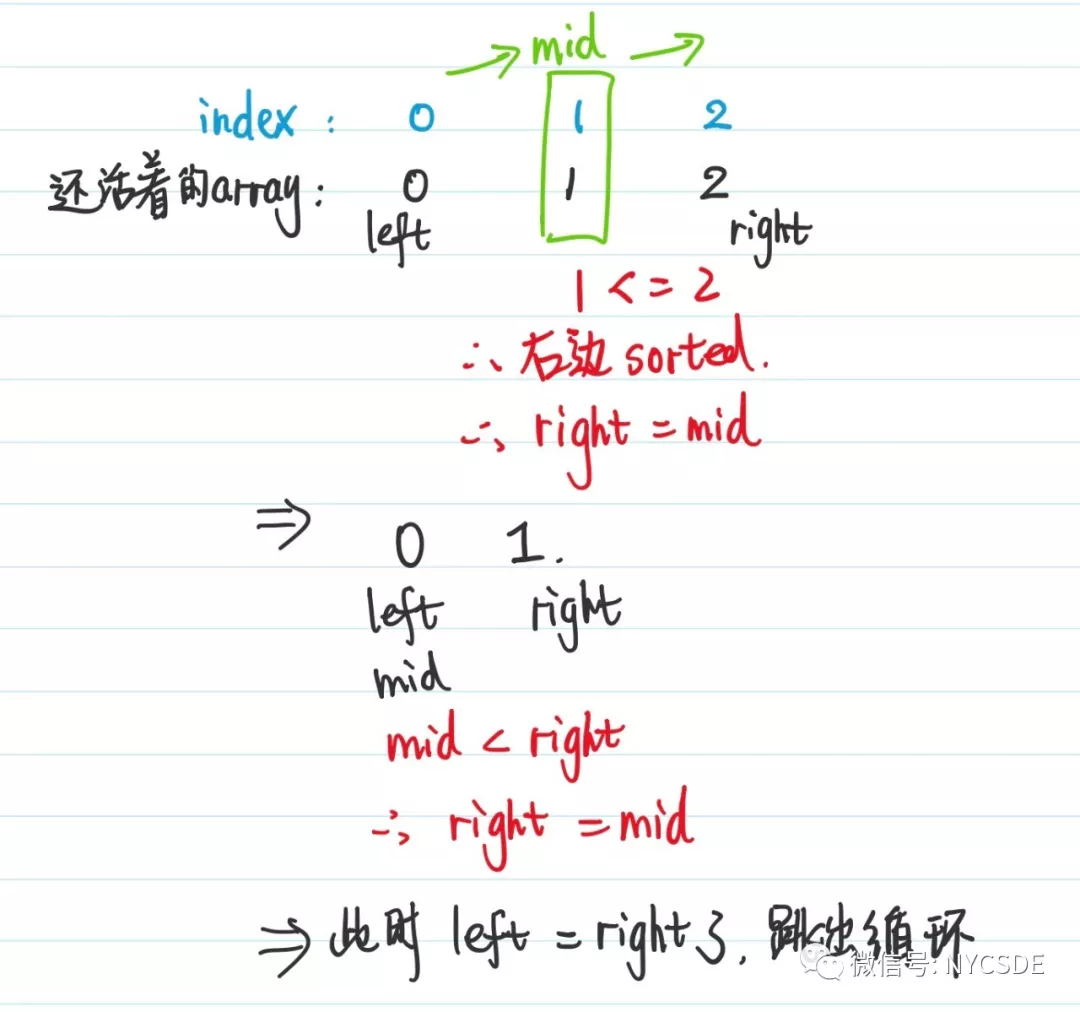 mid
index: 0 1 2
还活着的array: 0 1 2
left right
1 <= 2
∴ 右边 sorted.
∴ right = mid
⇒ 0 1.
left right
mid
mid < right
∴ right = mid
⇒ 此时 left = right了, 跳出循环
微信号: NYCSDE